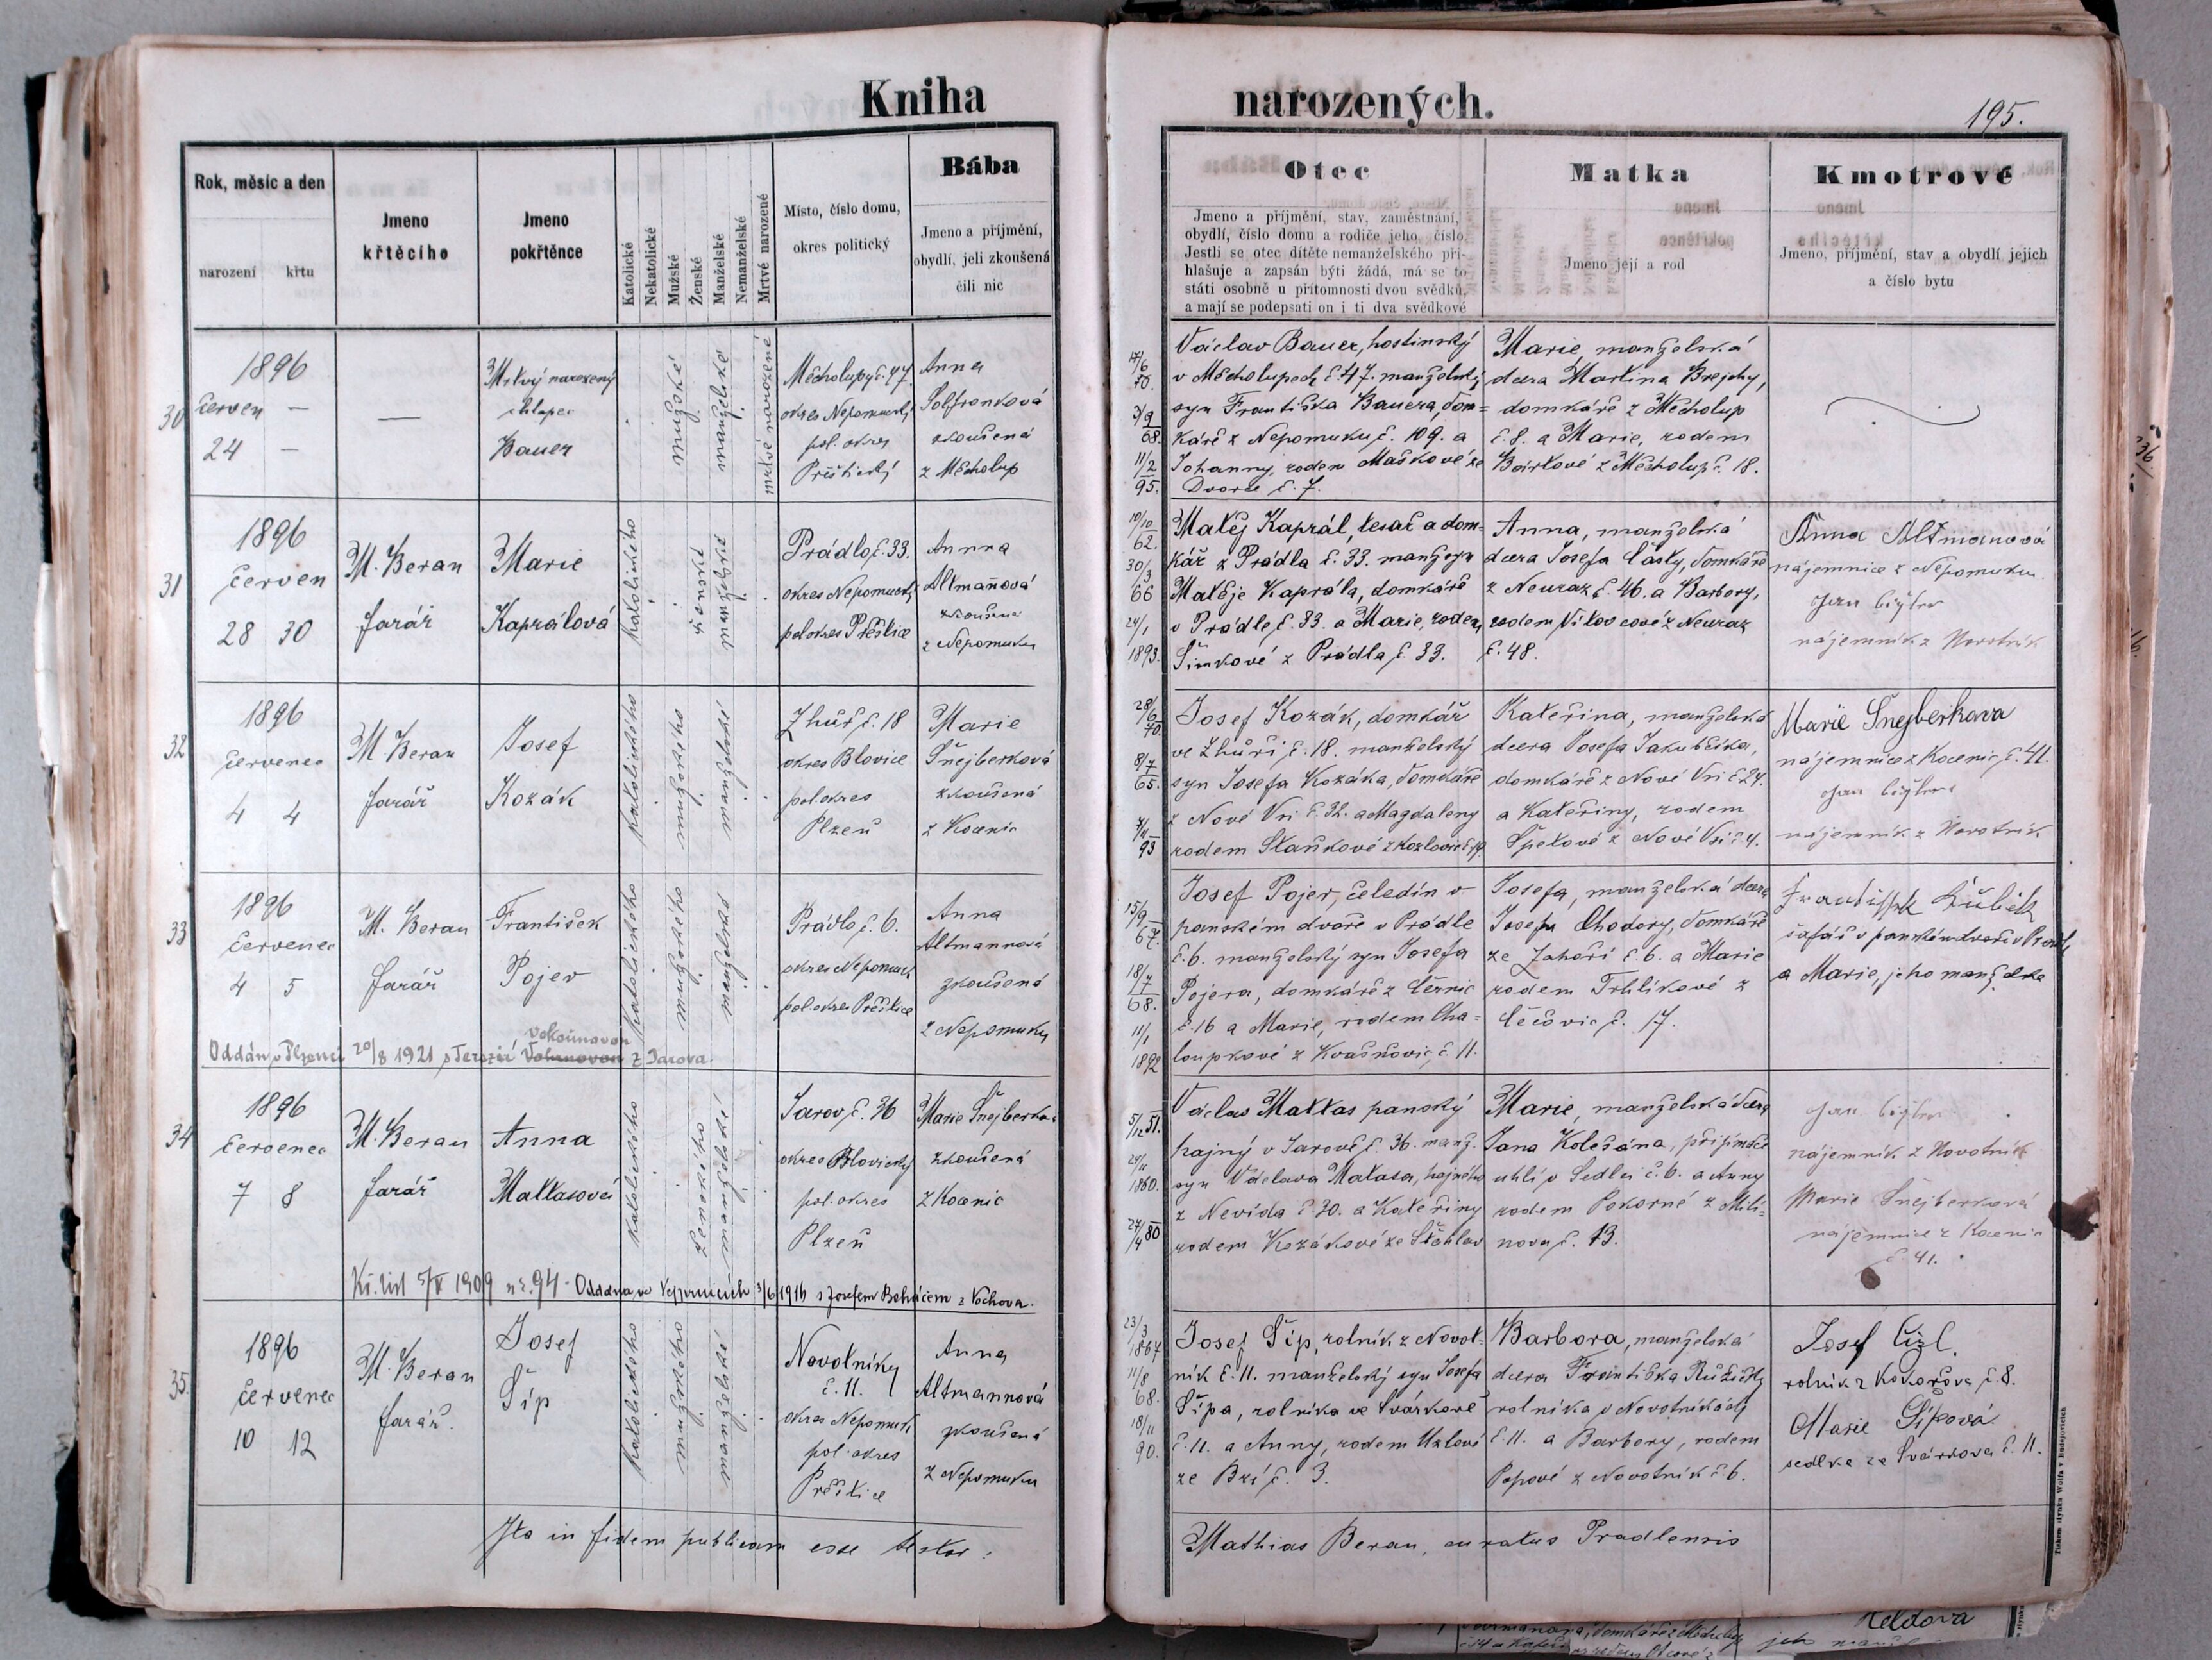 Kniha
narozených.
195.
Rok, měsíc a den
narození
křtu
Jmeno
křtěcího
Jmeno
pokřtěnce
Katolické
Nekatolické
Mužské
Ženské
Manželské
Nemanželské
Mrtvé narozené
Místo, číslo domu,
okres politický
Bába
Jmeno a příjmění,
obydlí, jeli zkoušená
čili nic
Otec
Jmeno a příjmění, stav, zaměstnání,
obydlí, číslo domu a rodiče jeho, číslo.
Jestli se otec dítěte nemanželského při-
hlašuje a zapsán býti žádá, má se to
státi osobně u přítomnosti dvou svědků,
a mají se podepsati on i ti dva svědkové
Matka
Jmeno její a rod
Kmotrové
Jmeno, příjmění, stav a obydlí jejich
a číslo bytu
30
1896
červen —
24 —
—
Mrtvý narozený
chlapec
Bauer
mužské
manželské
mrtvé narozené
Měcholupy č. 47.
okres Nepomucký
pol. okres
Přeštický
Anna
zkoušená
z Měcholup
17/6
70.
3/9
68.
11/2
95.
Václav Bauer, hostinský
v Měcholupech č. 47. manželský
syn Františka Bauera, dom=
káře z Nepomuku č. 109. a
Johanny, rodem Maškové ze
Dvorce č. 7.
Marie, manželská
dcera Martina Brejchy,
domkáře z Měcholup
č. 8. a Marie, rodem
Bárkové z Měcholup č. 18.
31
1896
červen
28 30
M. Beran
farář
Marie
Kaprálová
katolického
ženské
manželské
Prádlo, č. 33.
okres Nepomucký
pol. okres Přeštice
Anna
Altmaňová
zkoušená
z Nepomuku
10/10
62.
30/3
66
24/1
1893.
Matěj Kaprál, tesař a dom=
kář z Prádla č. 33. manž. syn
Matěje Kaprála, domkáře
v Prádle, č. 33. a Marie, rodem
Šimkové z Prádla, č. 33.
Anna, manželská
dcera Josefa Částy, domkáře
z Neuraz č. 46. a Barbory,
rodem Vítovcové z Neuraz
č. 48.
Anna Altmanová
nájemnice z Nepomuku.
Jan
nájemník z Novotník
32
1896
červenec
4 4
M Beran
farář
Josef
Kozák
katolického
mužského
manželské
Zhůř č. 18
okres Blovice
pol. okres
Plzeň
Marie
Šnejberková
zkoušená
z Kocenic
28/6
70.
8/7
65.
93
Josef Kozák, domkář
ve Zhůři č. 18. manželský
syn Josefa Kozáka, domkáře
z Nové Vsi č. 32. a Magdaleny
rodem Staňkové z Kozlovic
Kateřina, manželská
dcera Josefa Jakubčíka,
domkáře z Nové Vsi č. 24.
a Kateřiny, rodem
Špetové z Nové Vsi č. 4.
Marie Šnejberkova
nájemnice z Kocenic č. 41.
Jan
nájemník z Novotník
33
1896
červenec
4 5
M. Beran
farář
František
Pojer
Katolického
mužského
manželské
Prádlo, č. 6.
okres Nepomuck
pol. okres Přeštice
Anna
Altmannová
zkoušená
z Nepomuku
Vokounovou
Oddán v Plzenci 20/8 1921 s Terezií z Jarova.
15/9
67.
18/7
68.
11/1
1892
Josef Pojer, čeledín v
panském dvoře v Prádle
č. 6. manželský syn Josefa
Pojera, domkáře z Černic
č. 16 a Marie, rodem Cha=
loupkové z Kvaškovic, č. 11.
Josefa, manželská dcera
Josefa Chodory, domkáře
ze Zahoří č. 6. a Marie
rodem Trhlíkové z
Čečovic č. 17.
Frantissek Kubik
šafář v panském dvoře v Prádle
a Marie, jeho manželka
34
1896
červenec
7 8
M. Beran
farář
Anna
Mattasová
katolického
ženského
manželské
Jarov, č. 36
okres Blovický
pol. okres
Plzeň
Marie Šnejberková
zkoušená
z Kocenic
Kř. list 5/V 1909 nr. 94 - Oddána ve Vejprnicích 3/6 1916 s Josefem Boháčem z Vochova.
5/12 51.
1860.
27/4 80
Václav Mattas panský
hajný v Jarově č. 36. manž.
syn Václava Matasa, hajného
z Nevida č. 30. a Kateřiny
rodem Kozákové ze Štěhlav
Marie, manželská dcera
Jana Kolešána, přijímače
uhlí v Sedlci č. 6. a Anny
rodem Pokorné z Mili=
nova č. 13.
Jan
nájemník z Novotník
Marie Šnejberková
nájemnice z Kocenic
č. 41.
35.
1896
červenec
10 12
M. Beran
farář.
Josef
Šíp
Katolického
mužského
manželské
Novotníky
č. 11.
okres Nepomuk
pol. okres
Přeštice
Anna
Altmannová
zkoušená
z Nepomuku
23/3
1867
11/8
68.
18/11
90.
Josef Šíp, rolník z Novot-
ník č. 11. manželský syn Josefa
Šípa, rolníka ve Svárkově
č. 11. a Anny, rodem Uzlové
ze Bzí č. 3.
Barbora, manželská
dcera Františka Růžičky
rolníka v Novotníkách
č. 11. a Barbory, rodem
Popové z Novotník č. 6.
Josef Cízl.
rolník z Kokořova, č. 8.
Marie Šípová
sedlka ze Svárkova č. 11.
Ita in fidem publicam esse testor:
Mathias Beran, curatus Pradlensis
Tiskem slynka Wolfa v Budějovicích